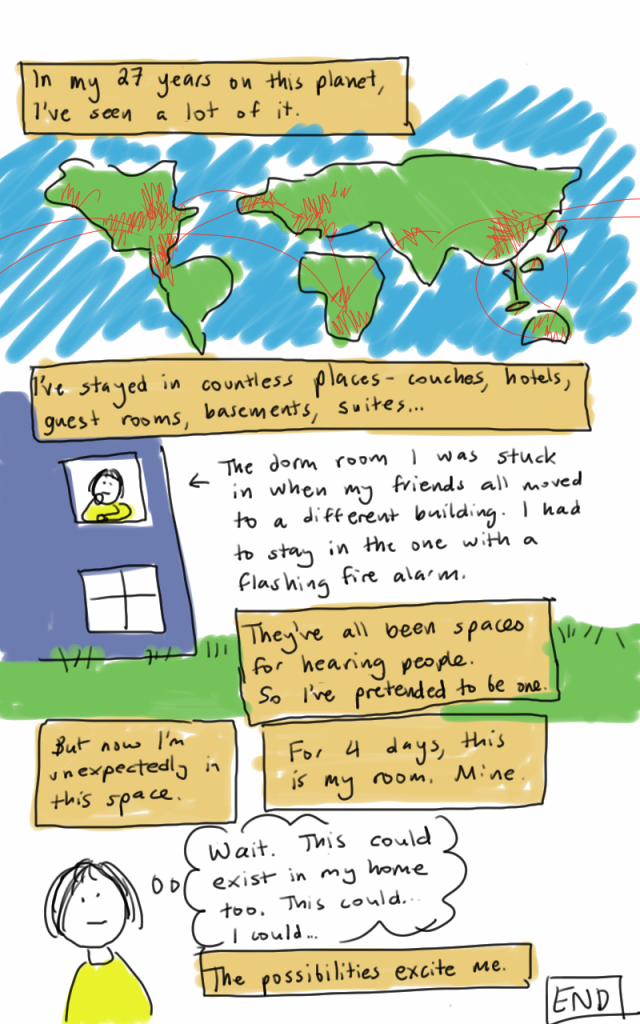 In my 27 years on this planet,
I've seen a lot of it.
I've stayed in countless places- couches, hotels,
guest rooms, basements, suites...
← The dorm room I was stuck
in when my friends all moved
to a different building. I had
to stay in the one with a
flashing fire alarm.
They've all been spaces
for hearing people.
So I've pretended to be one.
But now I'm
unexpectedly in
this space.
For 4 days, this
is my room. Mine.
Wait. This could
exist in my home
too. This could...
I could...
The possibilities excite me.
END